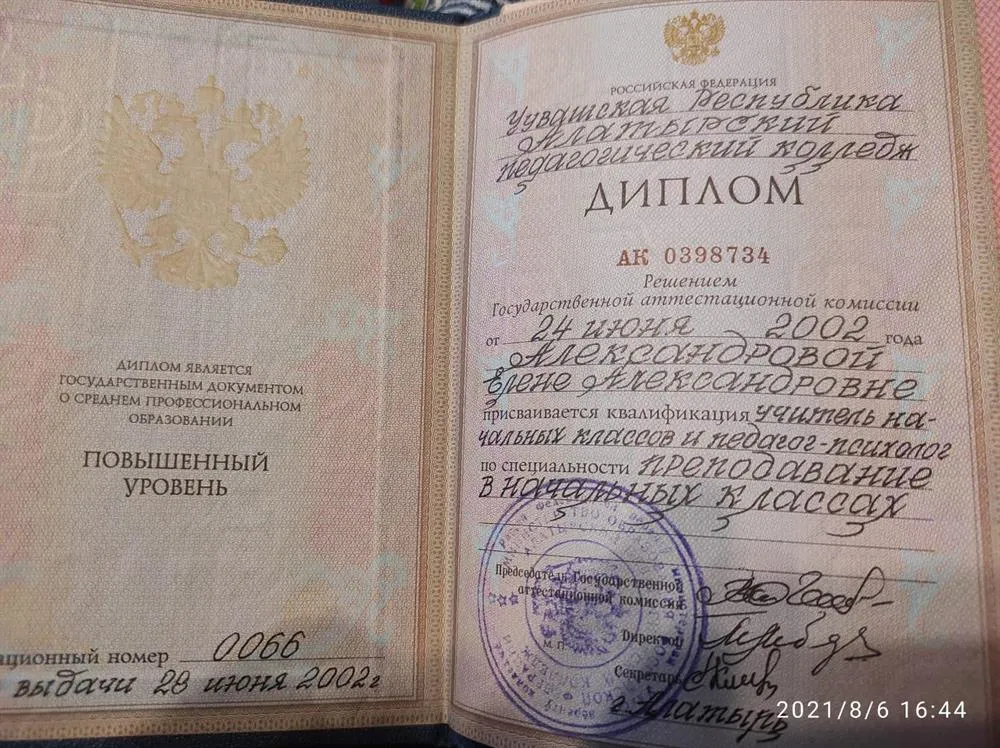 ДИПЛОМ ЯВЛЯЕТСЯ
ГОСУДАРСТВЕННЫМ ДОКУМЕНТОМ
О СРЕДНЕМ ПРОФЕССИОНАЛЬНОМ
ОБРАЗОВАНИИ
ПОВЫШЕННЫЙ
УРОВЕНЬ
ационный номер 0066
выдачи 28 июня 2002г
РОССИЙСКАЯ ФЕДЕРАЦИЯ
Чувашская Республика
Алатырский
педагогический колледж
ДИПЛОМ
АК 0398734
Решением
Государственной аттестационной комиссии
от 24 июня 2002 года
Александровой
Елене Александровне
присваивается квалификация учитель на-
чальных классов и педагог-психолог
по специальности преподавание
в начальных классах
Председатель Государственной
аттестационной комиссии
Директор
М.П.
Секретарь
г. Алатырь
2021/8/6 16:44